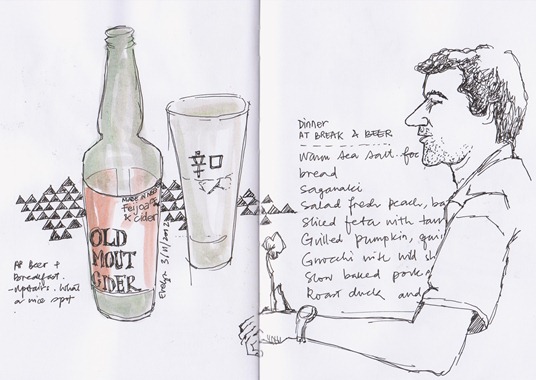 MADE IN NEW
Feijoa
& Cider
OLD
MOUT
CIDER
Evelyn 3/11/2012
辛口
At Beer +
Breakfast.
-upstairs. What
a nice spot
Dinner
AT BREAK & BEER
Warm Sea Salt foc
bread
Saganaki
Salad fresh peach, ba
Sliced feta with
Grilled pumpkin, qui
Gnocchi with wild sh
Slow baked pork
Roast duck and